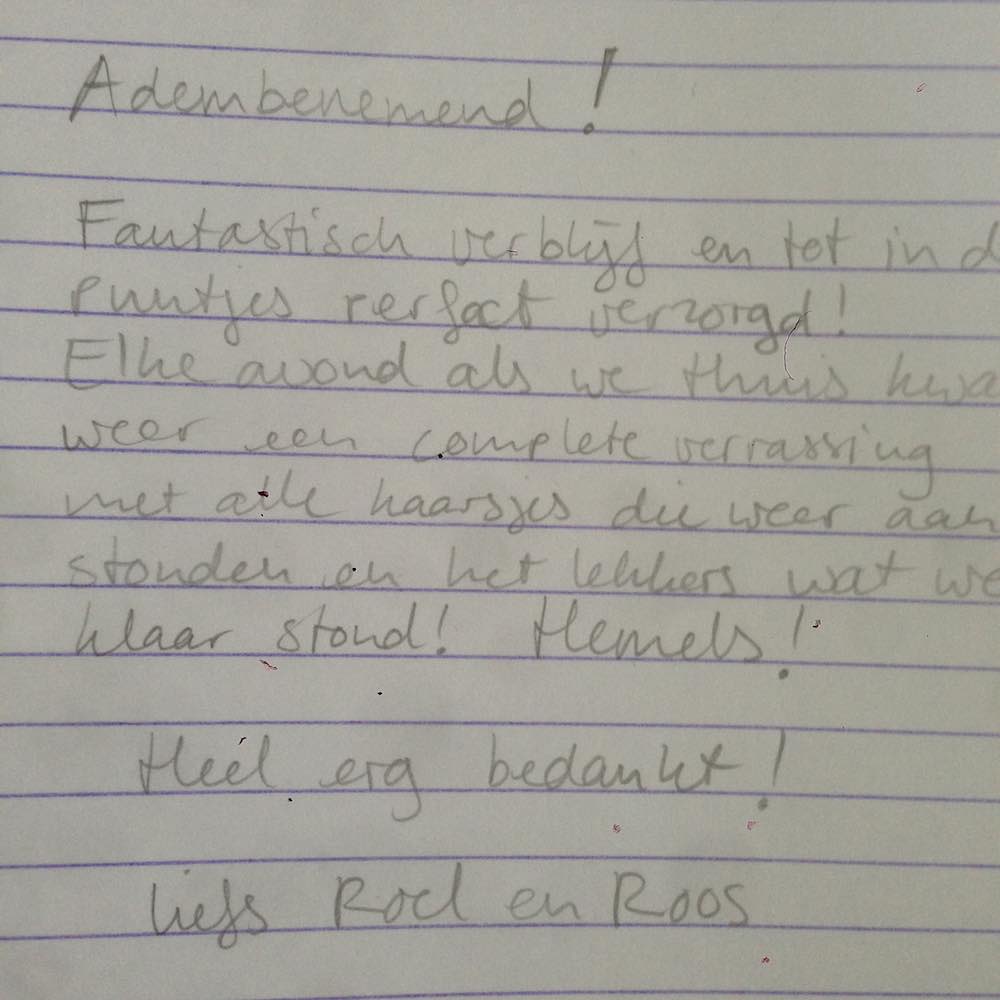 Adembenemend!
Fantastisch verblijf en tot in d
puntjes perfect verzorgd!
Elke avond als we thuis kwa
weer een complete verrassing
met alle kaarsjes die weer aan
stonden en het lekkers wat we
klaar stond! Hemels!
Heel erg bedankt!
liefs Roel en Roos